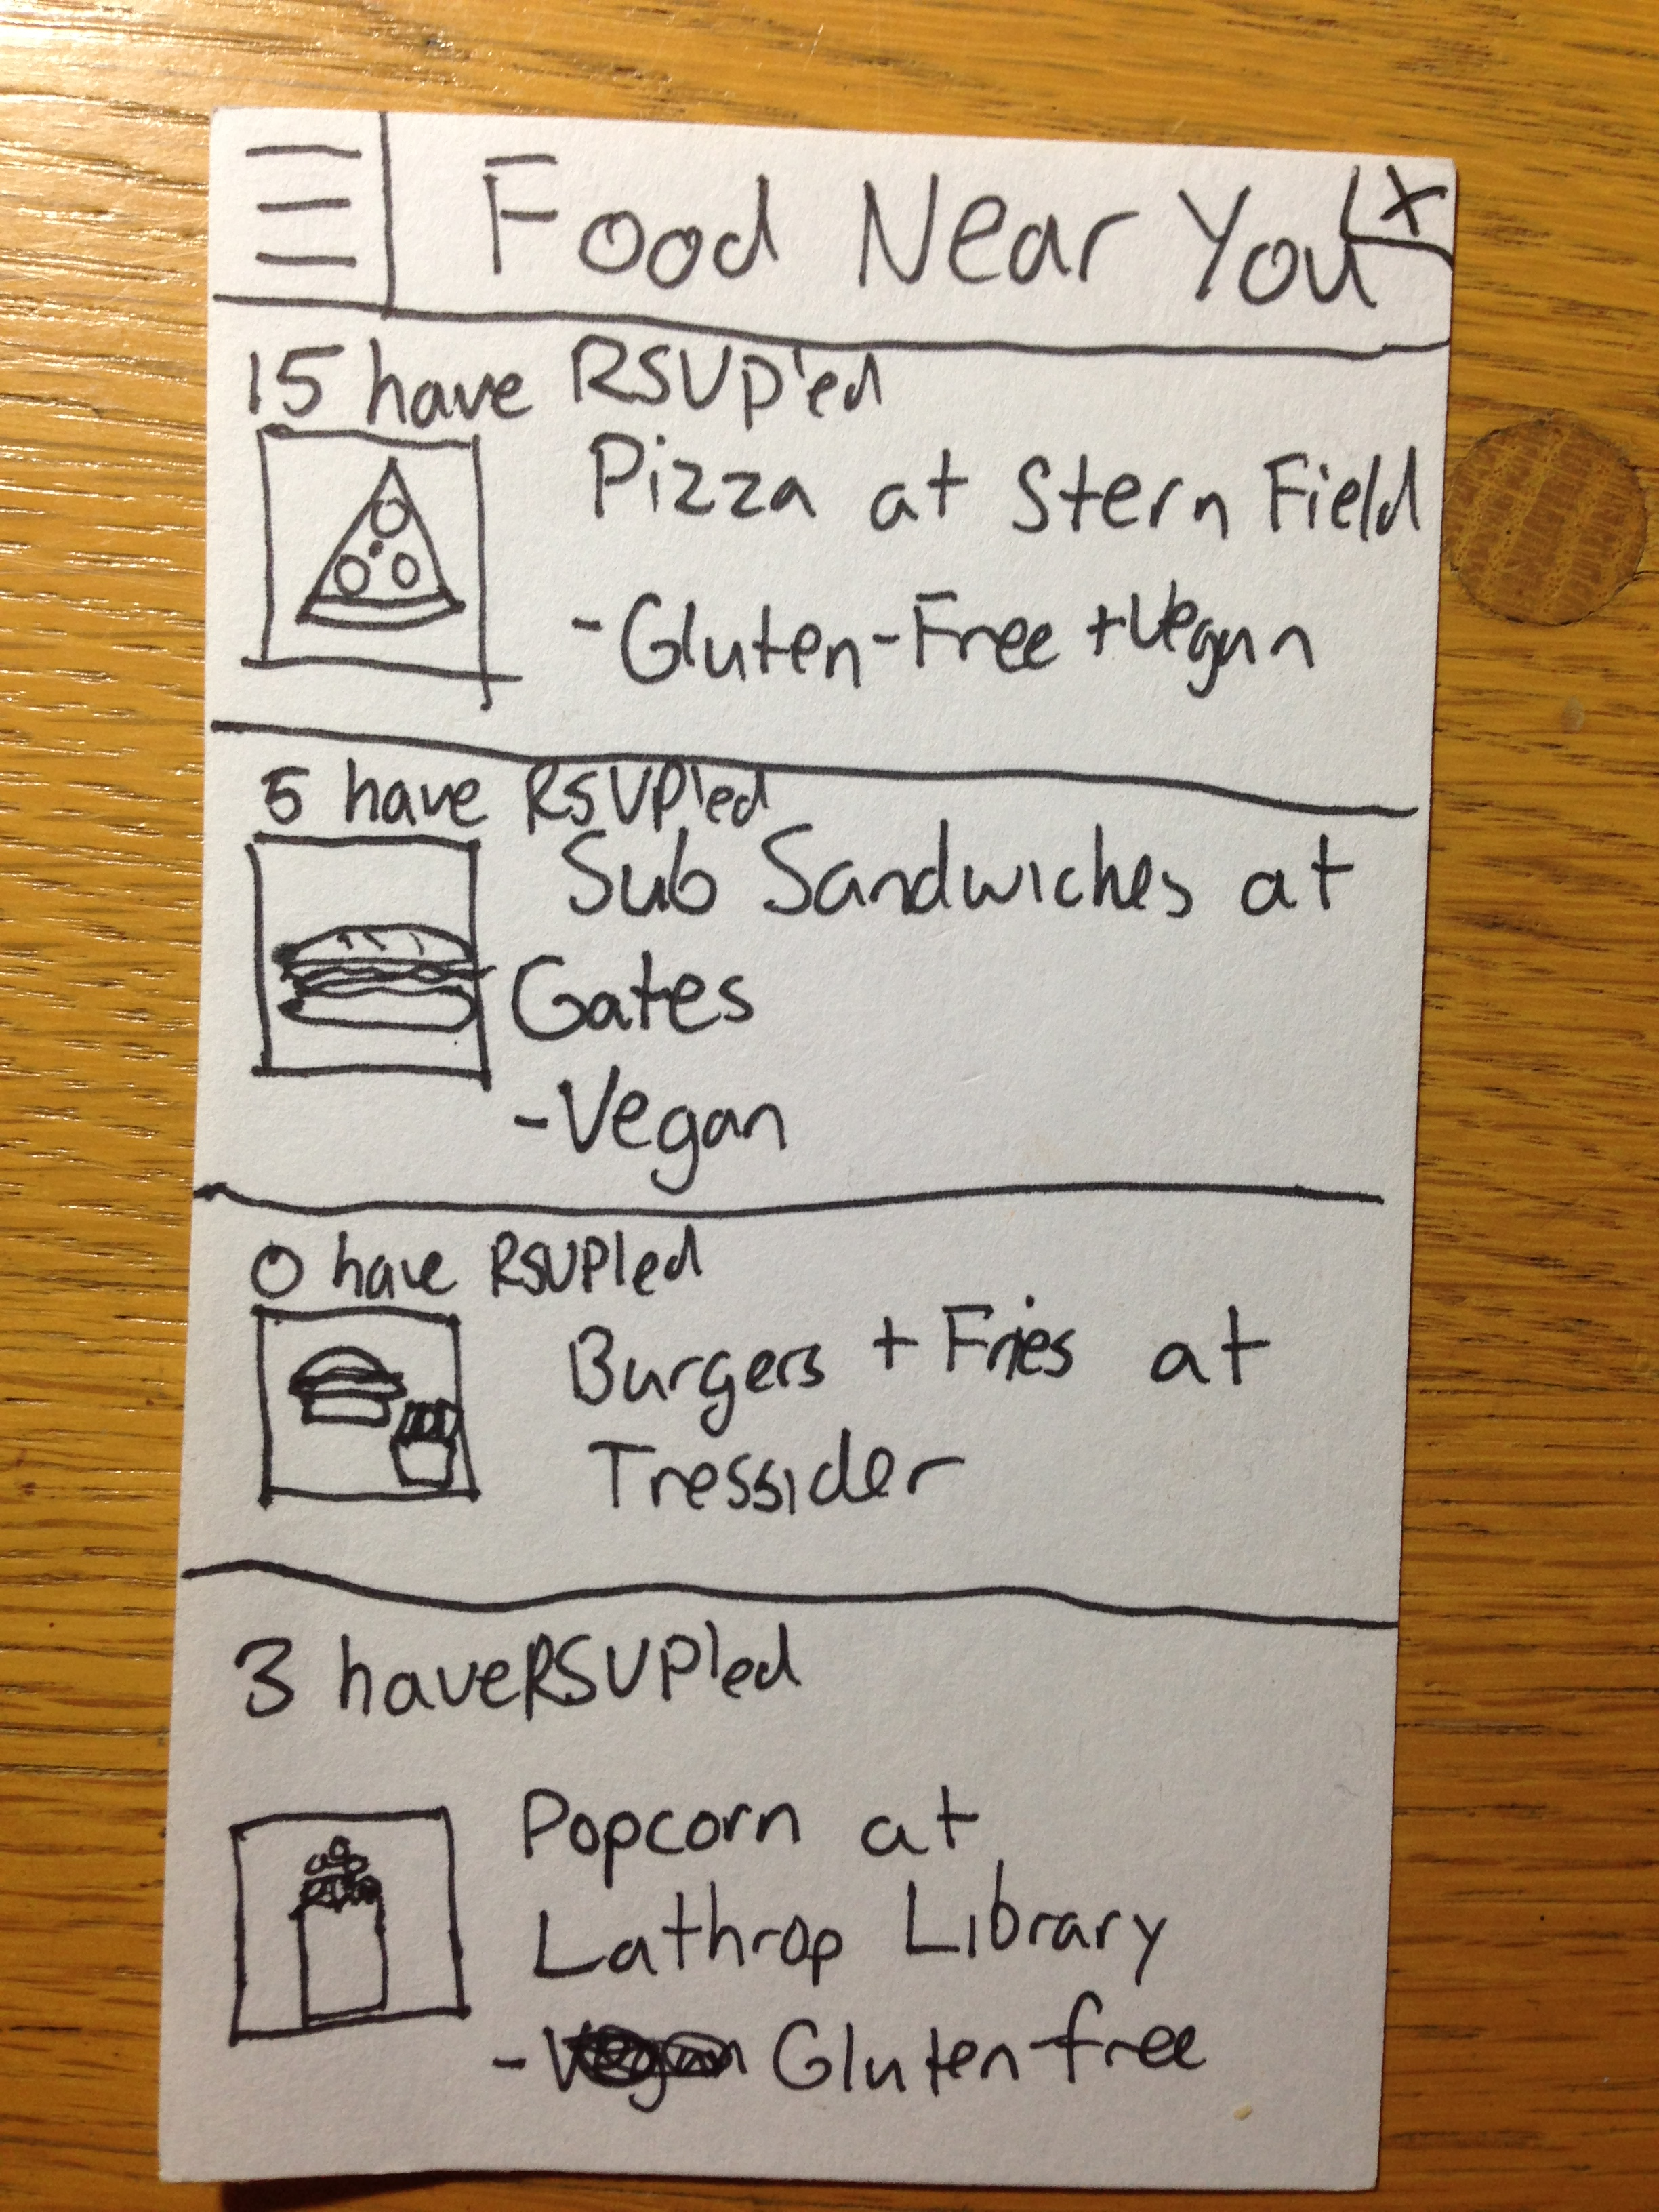 Food Near You X
15 have RSVP'ed
Pizza at Stern Field
-Gluten-Free + Vegan
5 have RSVP'ed
Sub Sandwiches at
Gates
-Vegan
0 have RSVP'ed
Burgers + Fries at
Tressider
3 have RSVP'ed
Popcorn at
Lathrop Library
- Gluten free